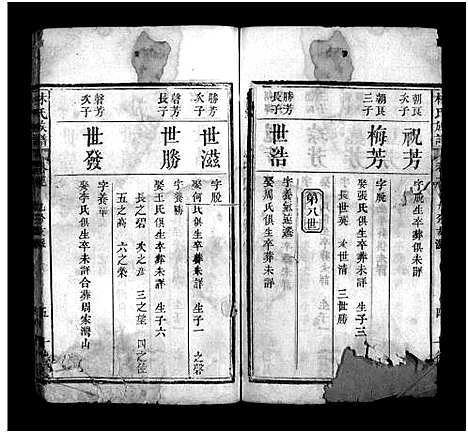 林氏族譜
朝良次子
祝芳
字脫生卒葬俱未詳
朝良三子
梅芳
字脫
娶張氏俱生卒葬未詳 生子三
長世英 次世清 三世勝
第八世
勝芳長子
世浩
娶周氏俱生卒葬未詳
馨芳次子
世滋
字脫
娶何氏俱生卒葬未詳 生子一 之碧
馨芳長子
世勝
娶王氏俱生卒葬未詳 生子六
長之碧 次之 三之望 四之
五之萬 六之榮
馨芳次子
世發
字養華
娶李氏俱生卒未詳合葬周家灣山
林氏族譜
五